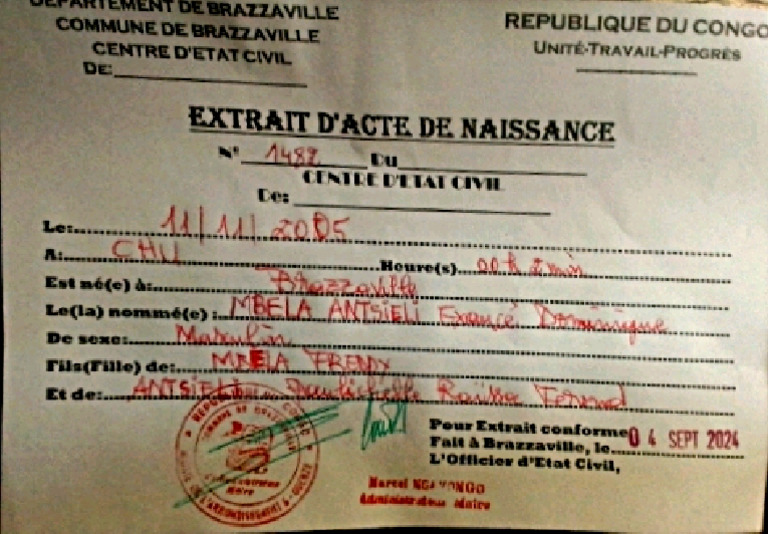 DEPARTEMENT DE BRAZZAVILLE
COMMUNE DE BRAZZAVILLE
CENTRE D'ETAT CIVIL
DE:
REPUBLIQUE DU CONGO
UNITÉ-TRAVAIL-PROGRÈS
EXTRAIT D'ACTE DE NAISSANCE
N° 1482 DU
CENTRE D'ETAT CIVIL
De:
Le: 11/11/2005
A: CHU Heure(s) 00 h 2 min
Est né(e) à: Brazzaville
Le(la) nommé(e) : MBELA ANTSIELI Exaucé Dominique
De sexe: Masculin
Fils(Fille) de: MBELA FREDDY
Et de: ANTSIELI
Pour Extrait conforme
Fait à Brazzaville, le 04 SEPT 2024
L'Officier d'Etat Civil,
Marcel
Administrateur Maire